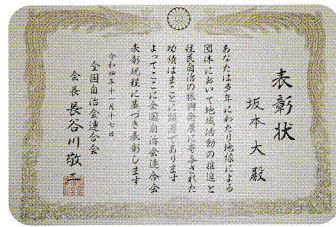 表彰状
坂本大殿
あなたは多年にわたり地縁による
団体において地域活動の推進と
住民自治の振興発展に寄与された
功績はまことに顕著であります
よってここに全国自治会連合会
表彰規程に基づき表彰します
令和四年十一月十七日
全国自治会連合会
会長 長谷川敬二